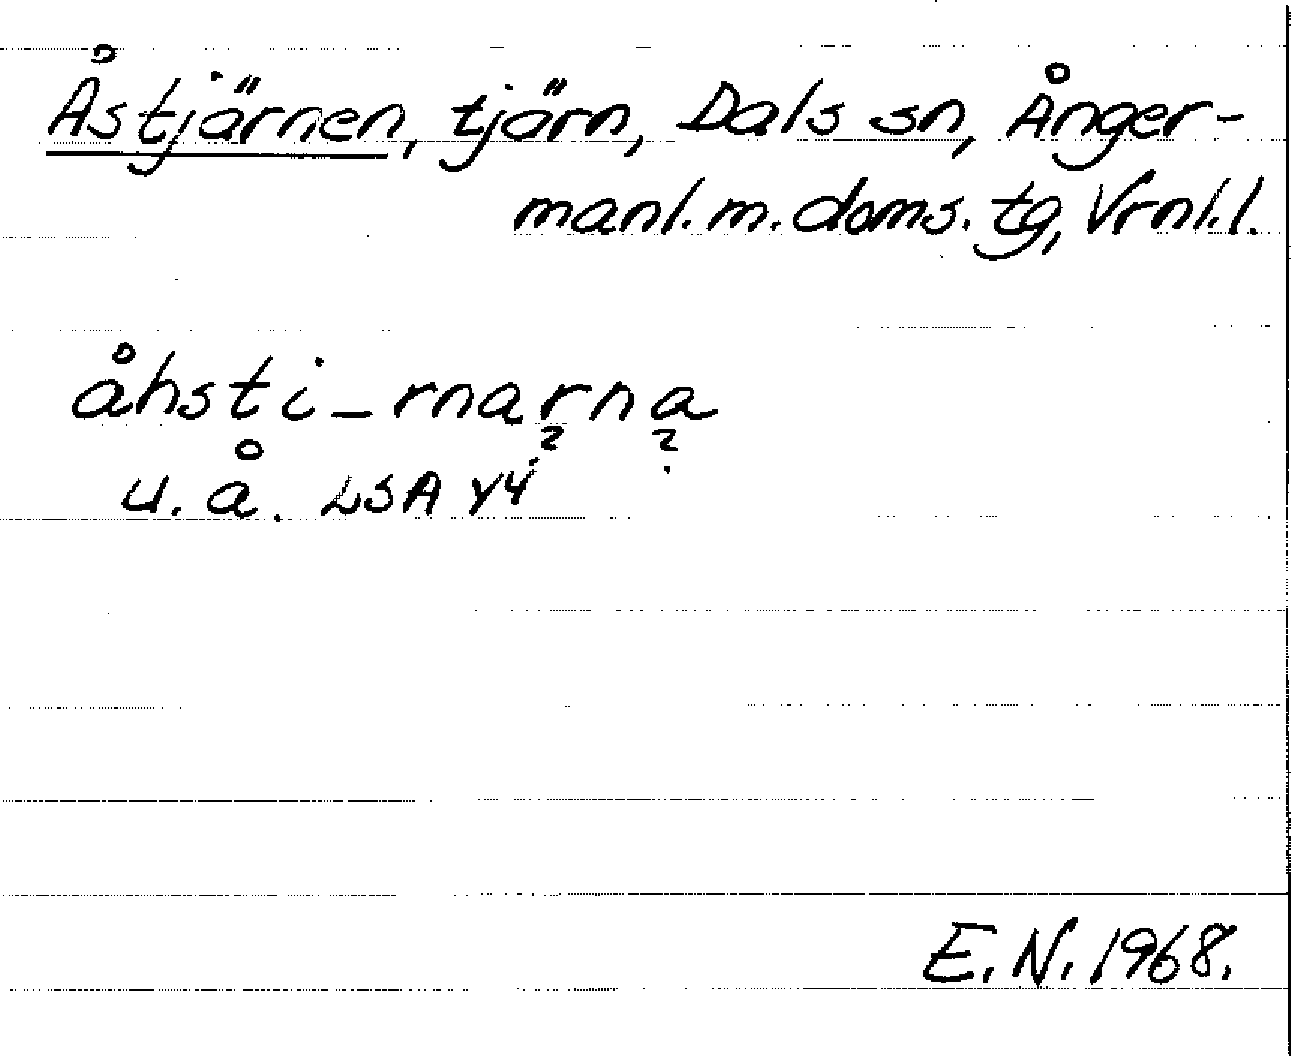 Åstjärnen, tjärn, Dals sn, Ånger-
manl. m. doms. tg, Vrnl. l.
åhsti_rnarna
? ?
u. å. LSA Y4
E. N. 1968.